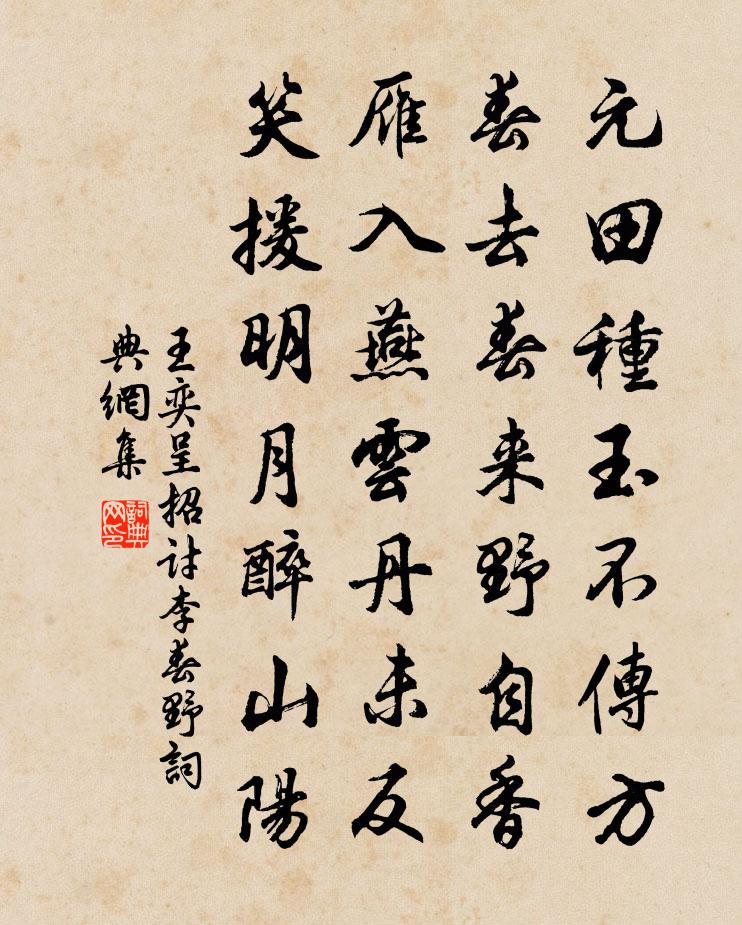 元田種玉不傳方
春去春来野自香
雁入燕雲丹未反
笑援明月醉山陽
王奕呈招討李春野詞
典網集
詞典
网印